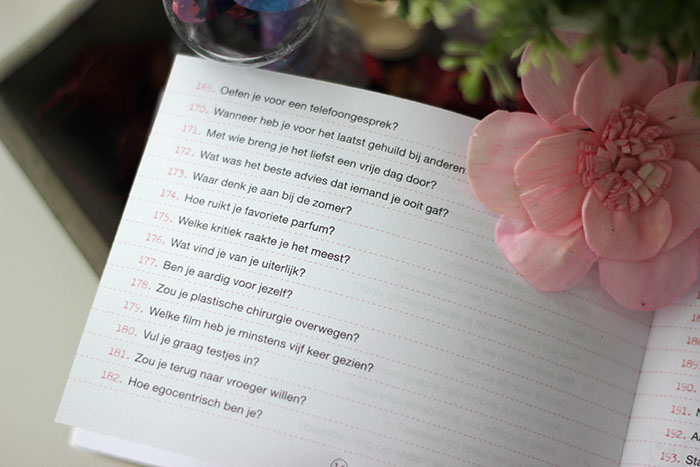 169. Oefen je voor een telefoongesprek?
170. Wanneer heb je voor het laatst gehuild bij anderen
171. Met wie breng je het liefst een vrije dag door?
172. Wat was het beste advies dat iemand je ooit gaf?
173. Waar denk je aan bij de zomer?
174. Hoe ruikt je favoriete parfum?
175. Welke kritiek raakte je het meest?
176. Wat vind je van je uiterlijk?
177. Ben je aardig voor jezelf?
178. Zou je plastische chirurgie overwegen?
179. Welke film heb je minstens vijf keer gezien?
180. Vul je graag testjes in?
181. Zou je terug naar vroeger willen?
182. Hoe egocentrisch ben je?
189.
190.
191.
192.
193.